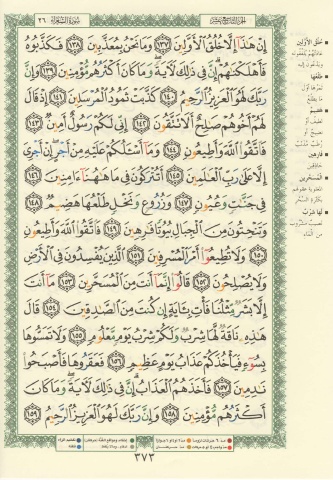 سورة الشعراء ٢٦
الجزء التاسع عشر
إِنْ هَٰذَآ إِلَّا خُلُقُ ٱلْأَوَّلِينَ ١٣٧ وَمَا نَحْنُ بِمُعَذَّبِينَ ١٣٨ فَكَذَّبُوهُ
فَأَهْلَكْنَٰهُمْ إِنَّ فِى ذَٰلِكَ لَءَايَةً وَمَا كَانَ أَكْثَرُهُم مُّؤْمِنِينَ ١٣٩ وَإِنَّ
رَبَّكَ لَهُوَ ٱلْعَزِيزُ ٱلرَّحِيمُ ١٤٠ كَذَّبَتْ ثَمُودُ ٱلْمُرْسَلِينَ ١٤١ إِذْ قَالَ
لَهُمْ أَخُوهُمْ صَٰلِحٌ أَلَا تَتَّقُونَ ١٤٢ إِنِّى لَكُمْ رَسُولٌ أَمِينٌ ١٤٣
فَٱتَّقُوا۟ ٱللَّهَ وَأَطِيعُونِ ١٤٤ وَمَآ أَسْـَٔلُكُمْ عَلَيْهِ مِنْ أَجْرٍ إِنْ أَجْرِىَ
إِلَّا عَلَىٰ رَبِّ ٱلْعَٰلَمِينَ ١٤٥ أَتُتْرَكُونَ فِى مَا هَٰهُنَآ ءَامِنِينَ ١٤٦
فِى جَنَّٰتٍ وَعُيُونٍ ١٤٧ وَزُرُوعٍ وَنَخْلٍ طَلْعُهَا هَضِيمٌ ١٤٨
وَتَنْحِتُونَ مِنَ ٱلْجِبَالِ بُيُوتًا فَٰرِهِينَ ١٤٩ فَٱتَّقُوا۟ ٱللَّهَ وَأَطِيعُونِ
١٥٠ وَلَا تُطِيعُوٓا۟ أَمْرَ ٱلْمُسْرِفِينَ ١٥١ ٱلَّذِينَ يُفْسِدُونَ فِى ٱلْأَرْضِ
وَلَا يُصْلِحُونَ ١٥٢ قَالُوٓا۟ إِنَّمَآ أَنتَ مِنَ ٱلْمُسَحَّرِينَ ١٥٣ مَآ أَنتَ
إِلَّا بَشَرٌ مِّثْلُنَا فَأْتِ بِـَٔايَةٍ إِن كُنتَ مِنَ ٱلصَّٰدِقِينَ ١٥٤ قَالَ
هَٰذِهِۦ نَاقَةٌ لَّهَا شِرْبٌ وَلَكُمْ شِرْبُ يَوْمٍ مَّعْلُومٍ ١٥٥ وَلَا تَمَسُّوهَا
بِسُوٓءٍ فَيَأْخُذَكُمْ عَذَابُ يَوْمٍ عَظِيمٍ ١٥٦ فَعَقَرُوهَا فَأَصْبَحُوا۟
نَٰدِمِينَ ١٥٧ فَأَخَذَهُمُ ٱلْعَذَابُ إِنَّ فِى ذَٰلِكَ لَءَايَةً وَمَا كَانَ
أَكْثَرُهُم مُّؤْمِنِينَ ١٥٨ وَإِنَّ رَبَّكَ لَهُوَ ٱلْعَزِيزُ ٱلرَّحِيمُ ١٥٩
٣٧٣
خلق الأولين
طلعها
هضيم
فارهين
المسحرين
لها شرب